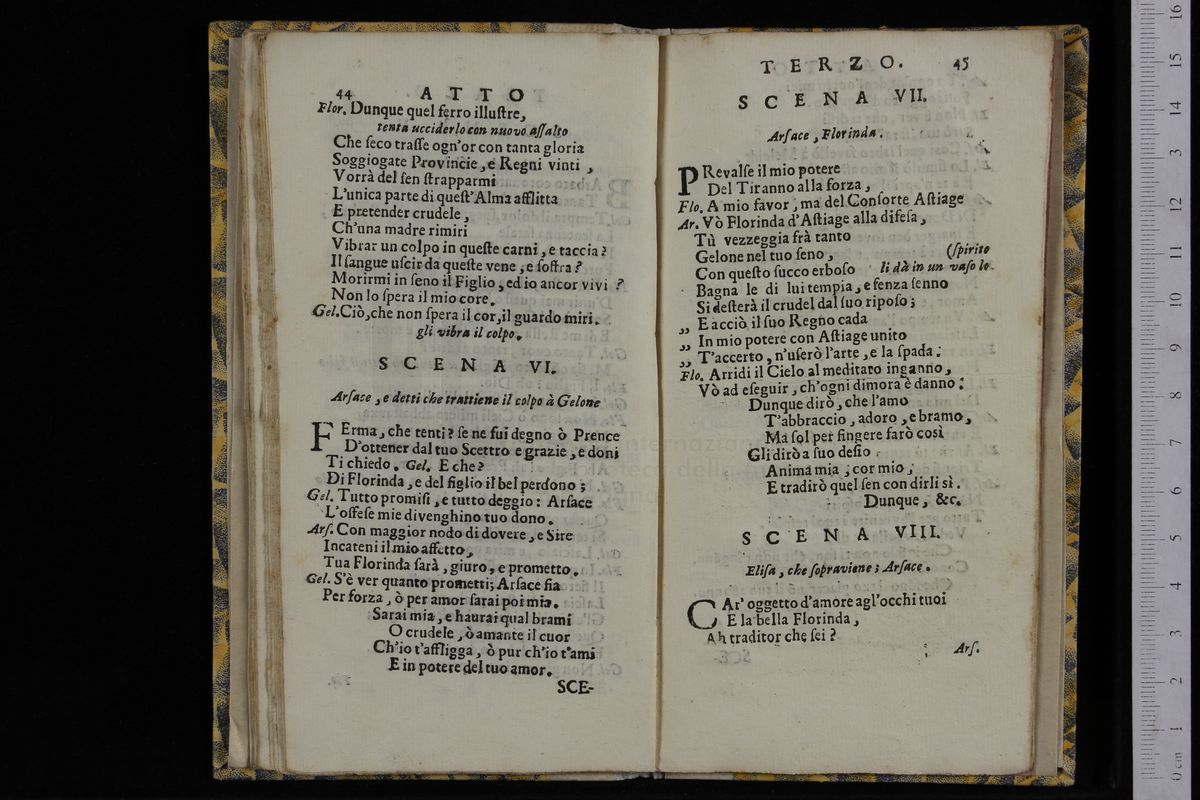 44 ATTO
Flor. Dunque quel ferro illuſtre,
tenta ucciderlo con nuovo aſſalto
Che ſeco traſſe ogn'or con tanta gloria
Soggiogate Provincie, e Regni vinti,
Vorrà del ſen ſtrapparmi
L'unica parte di queſt'Alma afflitta
E pretender crudele,
Ch'una madre rimiri
Vibrar un colpo in queſte carni, e taccia?
Il ſangue uſcir da queſte vene, e ſoffra?
Morirmi in ſeno il Figlio, ed io ancor vivi?
Non lo ſpera il mio core.
Gel. Ciò, che non ſpera il cor, il guardo miri.
gli vibra il colpo.
SCENA VI.
Arſace, e detti che trattiene il colpo à Gelone
FErma, che tenti? ſe ne fui degno ò Prence
D'ottener dal tuo Scettro e grazie, e doni
Ti chiedo. Gel. E che?
Di Florinda, e del figlio il bel perdono;
Gel. Tutto promiſi, e tutto deggio: Arſace
L'offeſe mie divenghino tuo dono.
Arſ. Con maggior nodo di dovere, e Sire
Incateni il mio affetto,
Tua Florinda ſarà, giuro, e prometto.
Gel. S'è ver quanto prometti; Arſace ſia
Per forza, ò per amor ſarai poi mia.
Sarai mia, e haurai qual brami
O crudele, ò amante il cuor
Ch'io t'affligga, ò pur ch'io t'ami
E in potere del tuo amor.
SCE-
TERZO. 45
SCENA VII.
Arſace, Florinda.
PRevalſe il mio potere
Del Tiranno alla forza,
Flo. A mio favor, ma del Conſorte Aſtiage
Ar. Vò Florinda d'Aſtiage alla difeſa,
Tù vezzeggia frà tanto
Gelone nel tuo ſeno, (ſpirito
Con queſto ſucco erboſo li dà in un vaſo lo
Bagna le di lui tempia, e ſenza ſenno
Si deſterà il crudel dal ſuo ripoſo;
,, E acciò il ſuo Regno cada
,, In mio potere con Aſtiage unito
,, T'accerto, n'uſerò l'arte, e la ſpada:
Flo. Arridi il Cielo al meditato inganno,
Vò ad eſeguir, ch'ogni dimora è danno:
Dunque dirò, che l'amo
T'abbraccio, adoro, e bramo,
Ma ſol per fingere farò così
Gli dirò a ſuo deſio
Anima mia, cor mio,
E tradirò quel ſen con dirli sì.
Dunque, &c.
SCENA VIII.
Eliſa, che ſopraviene; Arſace.
CAr' oggetto d'amore agl'occhi tuoi
E la bella Florinda,
Ah traditor che ſei?
Arſ.